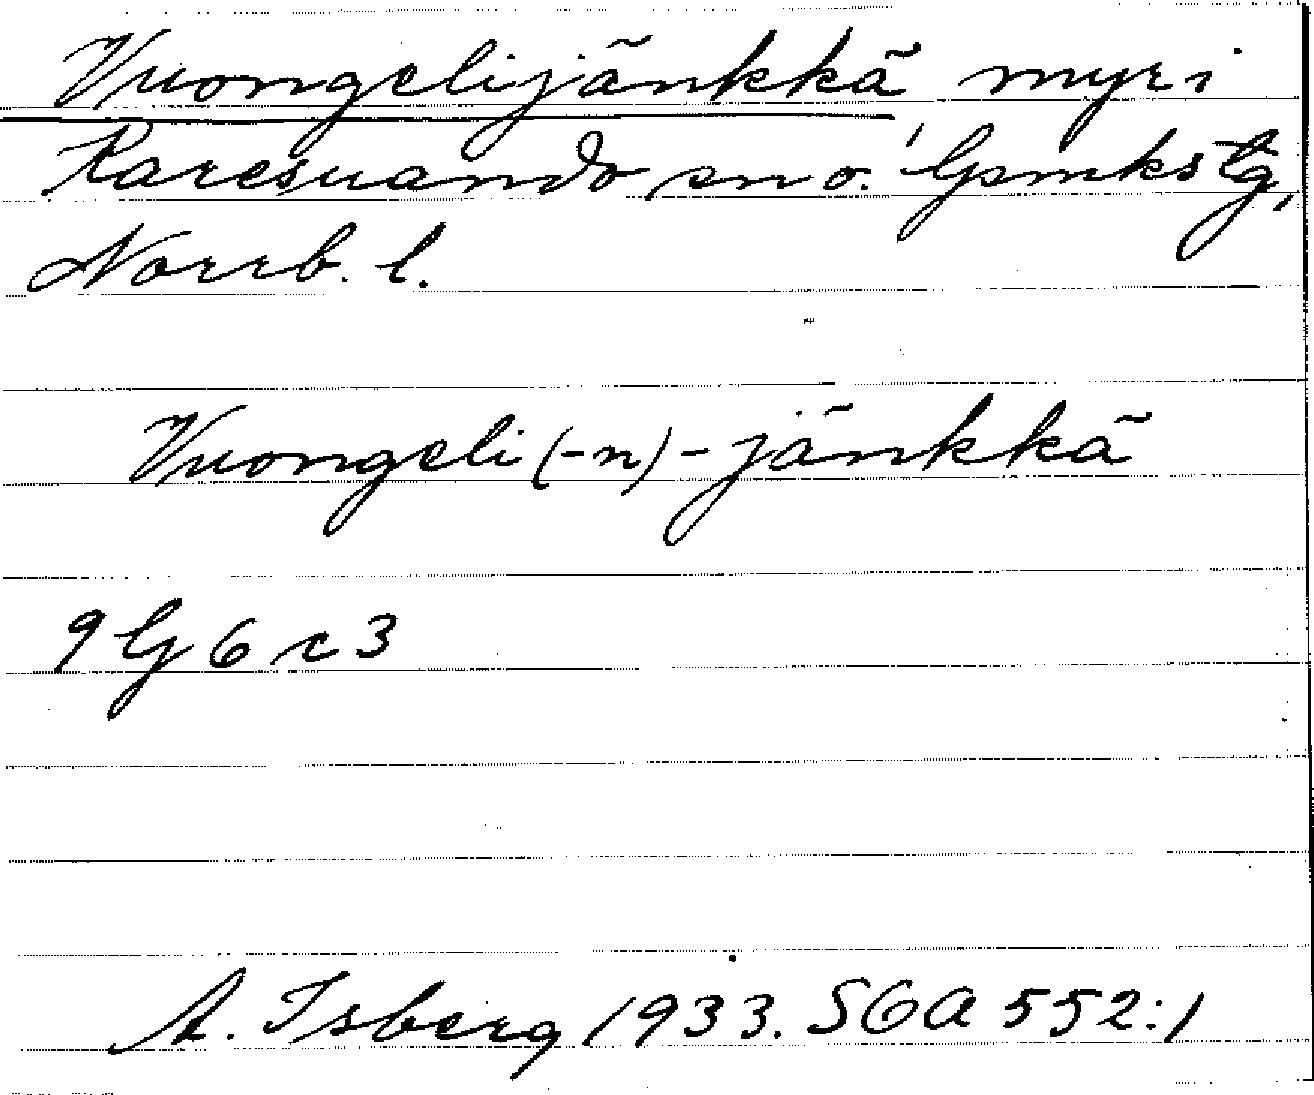 Vuongelijänkkä myr i
Karesuando sn o. Lpmkstg,
Norrb. l.
Vuongeli (-n) - jänkkä
9 G 6 c 3
A. Isberg 1933. SOA 552:1